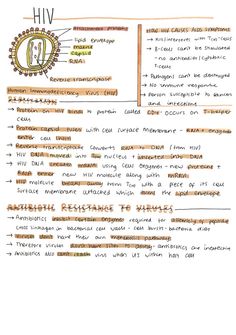 HIV
attachment proteins
lipid envelope
matrix
capsid
RNA
Reverse transcriptase
Human Immunodeficiency Virus (HIV)
HOW HIV CAUSE AIDS SYMPTOMS
→ B-cells can't be stimulated
- no antibodies/cytotoxic T-cells
→ Pathogens can't be destroyed
→ No immune response
→ Person susceptible to cancers and infections
REPLICATION
→ Protein on HIV binds to protein called CD4 - occurs on T-helper cells
→ Protein capsid fuses with cell surface membrane - RNA + enzymes enter
→ Reverse transcriptase converts RNA → DNA (from HIV)
→ HIV DNA moved into nucleus + inserted into DNA
→ HIV DNA creates mRNA using cells enzymes - new proteins + RNA enter new HIV molecule along with mRNA.
→ HIV molecule breaks away from THC with a piece of its cell surface membrane attached which forms the lipid envelope
ANTIBIOTIC RESISTANCE TO VIRUSES
→ Antibiotics inhibit certain enzymes required for
cross linkages in bacterial cell walls - cell burst - bacteria dies
→ Viruses don't have their own metabolic pathways
→ Therefore viruses don't have sites to - antibiotics are ineffective
→ Antibiotics also can't reach virus when it's within host cell